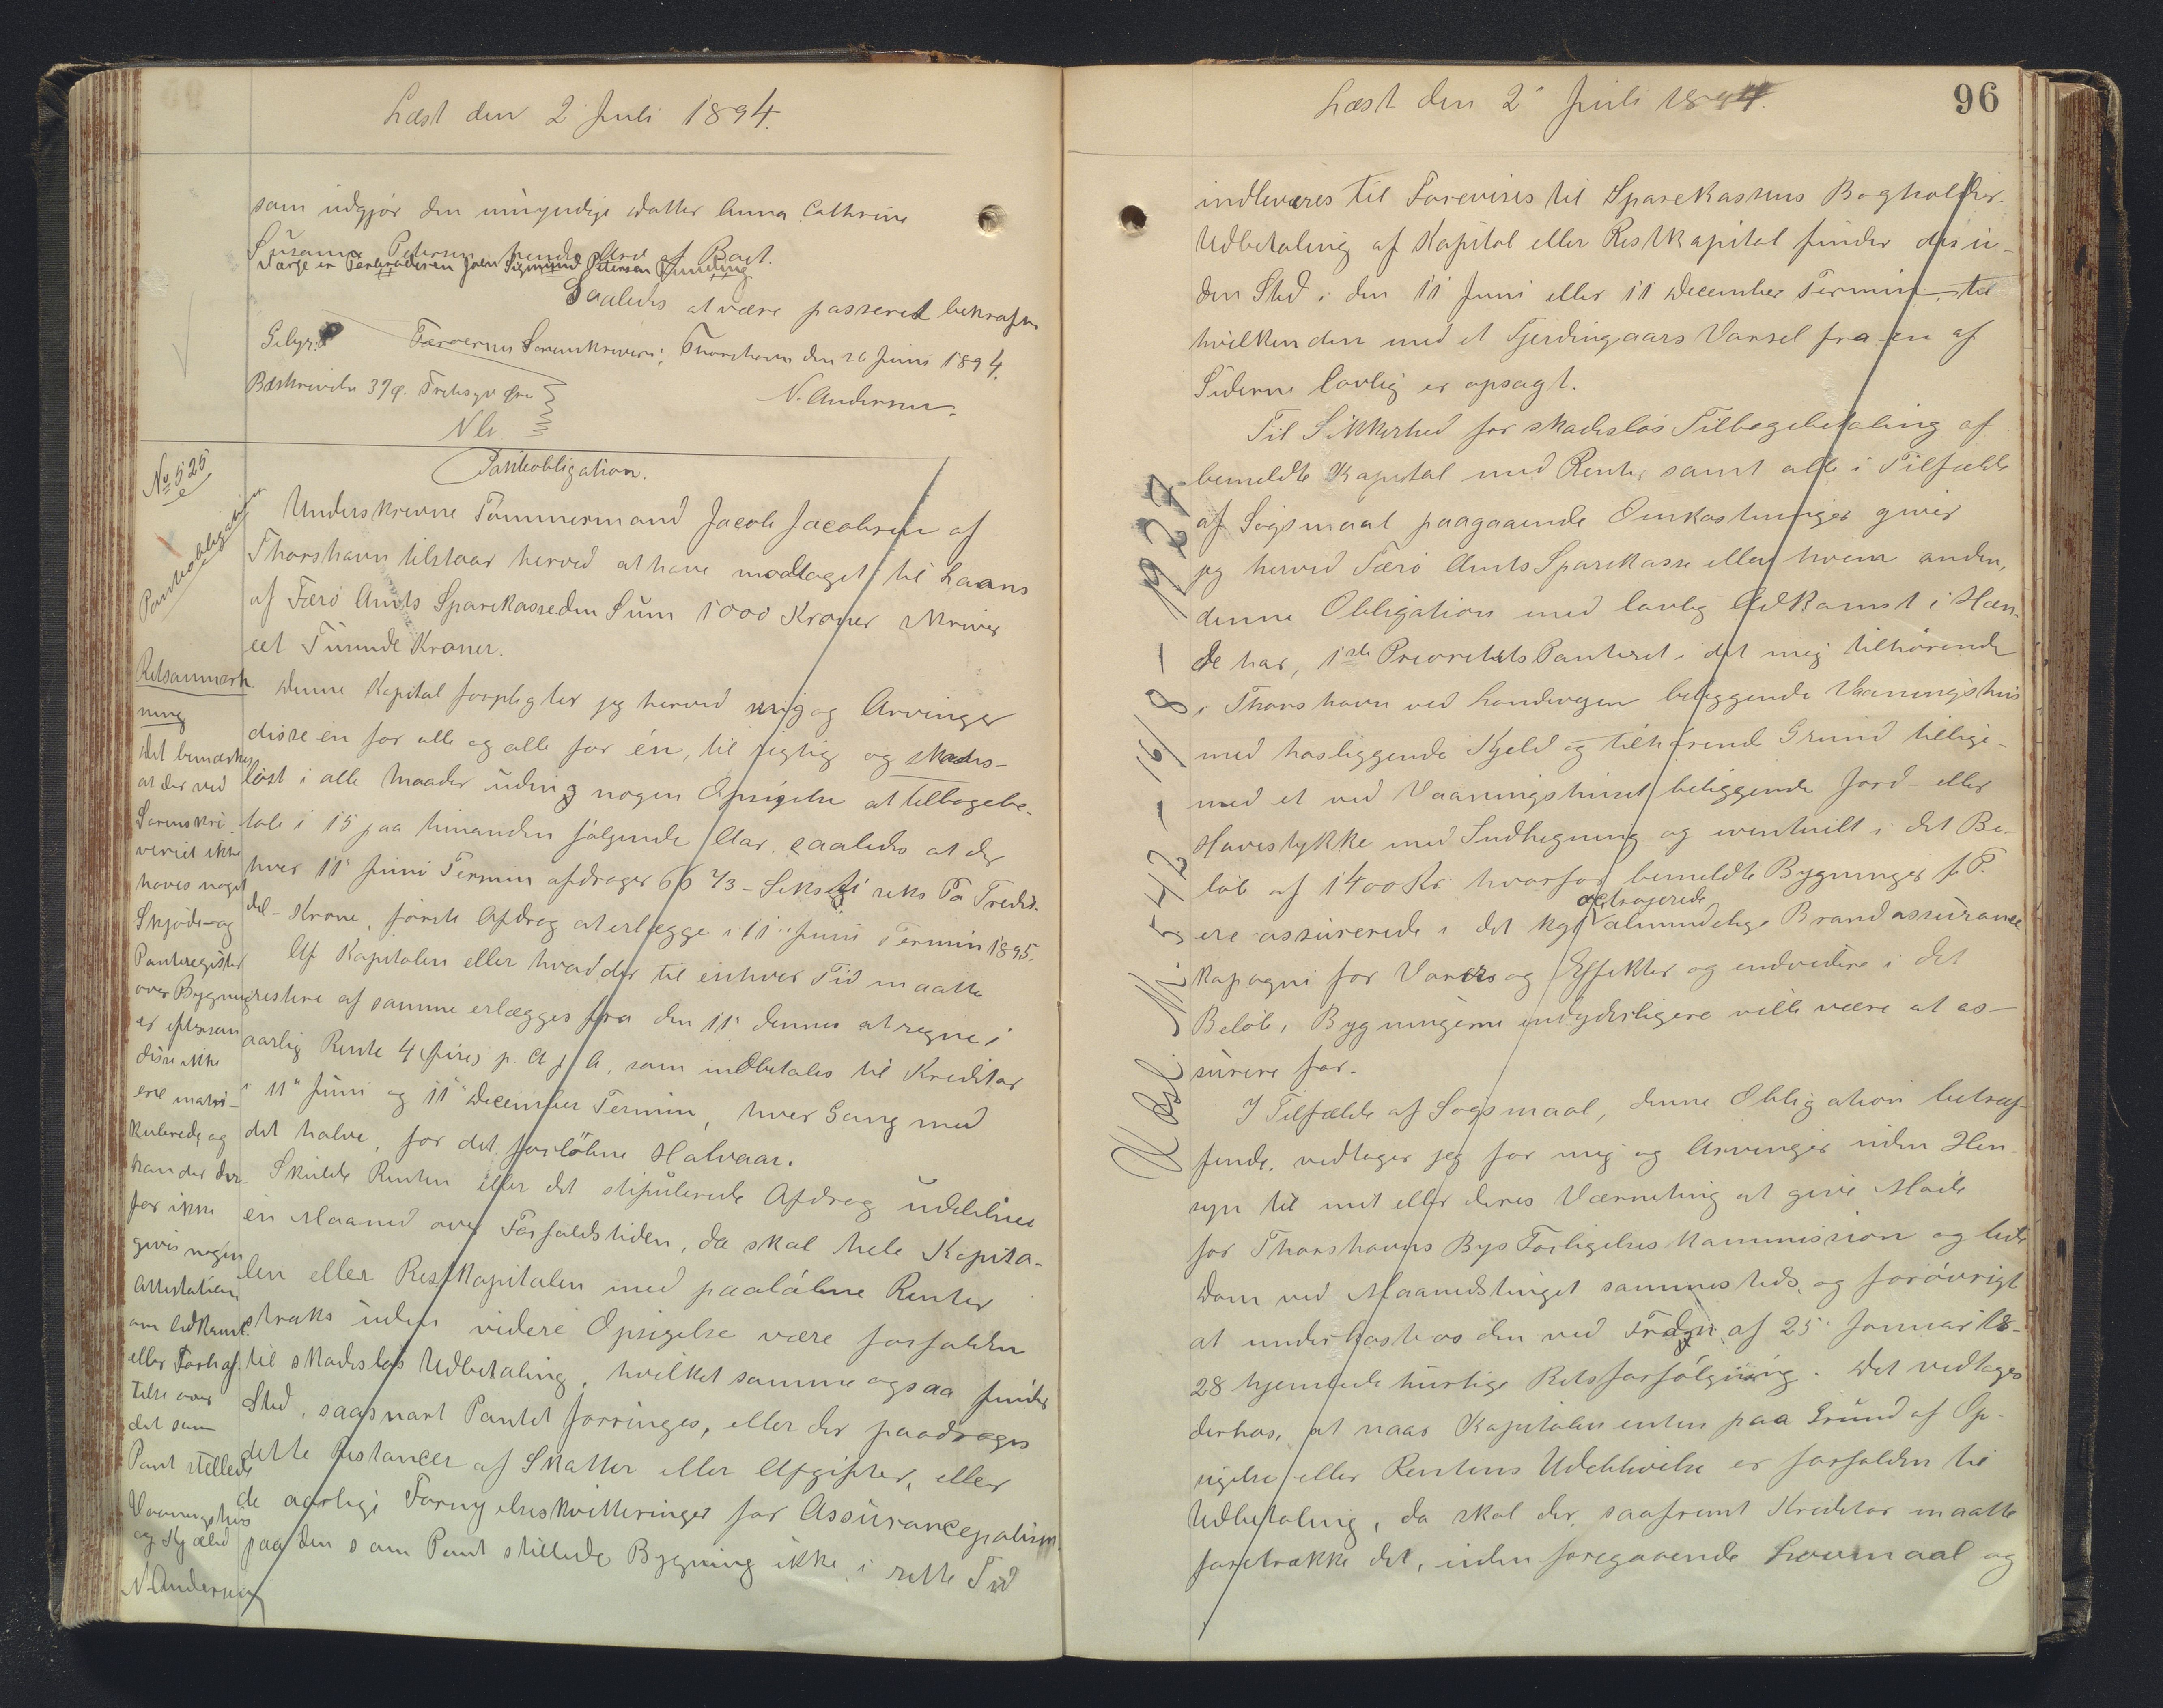 Læst den 2 Juli 1894.
som udgjør den umyndige Datter Anna Cathrine
Susanna Petersen hendes Arv af Boet.
Værge er Farbroderen Joen Sigmund Petersen Funding
Saaledes at være passeret bekræftes
Færøernes Sorenskriveri, Thorshavn den 26 Juni 1894.
N. Andersen.
Gebyr.
Beskrivelse 37 Ø. Tredsyv Øre
NA.
No 525
Panteobligation
Pantobligation.
Underskrevne Tømmermand Jacob Jacobsen af
Thorshavn tilstaar herved at have modtaget til Laans
af Færø Amts Sparekasse den Sum 1000 Kroner skriver
eet Tusinde Kroner.
Denne Kapital forpligter jeg herved mig og Arvinger
disse en for alle og alle for én, til rigtig og skades-
løst i alle Maader uden nogen Opsigelse at tilbagebe-
tale i 15 paa hinanden følgende Aar, saaledes at der
hver 11" Juni Termin afdrages 66 2/3 - Seksti seks To Tredie-
del - Krone, første Afdrag at erlægge i 11" Juni Termin 1895.
Af Kapitalen eller hvad der til enhver Tid maatte
restere af samme erlægges fra den 11" dennes at regne i
aarlig Rente 4 (fire) p. C. p. A, som indbetales til Kreditor
i 11" Juni og 11" December Termin, hver Gang med
det halve, for det forløbne Halvaar.
Skulde Renten eller det stipulerede Afdrag udeblive
en Maaned over Forfaldstiden, da skal hele Kapita-
len eller Restkapitalen med paaløbne Renter
straks uden videre Opsigelse være forfalden
til skadesløs Udbetaling, hvilket samme ogsaa finder
Sted, saasnart Pantet forringes, eller der paadrages
dette Restancer af Skatter eller Afgifter, eller
de aarlige Fornyelseskvitteringer for Assurancepolisen
paa den som Pant stillede Bygning ikke i rette Tid
Retsanmærk
ning
Det bemærkes
at der ved
Sorenskri-
veriet ikke
haves noget
Skjøde- og
Panteregister
over Bygning
er eftersom
disse ikke
ere matri-
kulerede, og
kan der der-
for ikke
gives nogen
Attestation
om Adkomst
eller Forhæf-
telse over
det som
Pant stillede
Vaaningshus
og Kjæld
N. Andersen
Læst den 2" Juli 1894.
96
indleveres til Forevises til Sparekassens Bogholder.
Udbetaling af Kapital eller Restkapital finder desu-
den Sted i den 11 Juni eller 11 December Termin, til
hvilken den med et Fjerdingaars Varsel fra en af
Siderne lovlig er opsagt.
Til Sikkerhed for skadesløs Tilbagebetaling af
bemeldte Kapital med Renter samt alle i Tilfælde
af Søgsmaal paagaaende Omkostninger giver
jeg herved Færø Amts Sparekasse eller hvem anden,
denne Obligation med lovlig Adkomst i Hæn-
de har, 1ste Prioritets Panteret i det mig tilhørende
i Thorshavn ved Landevejen beliggende Vaaningshus
med hosliggende Kjeld og tilhørende Grund tillige-
med et ved Vaaningshuset beliggende Jord- eller
Havestykke med Indhegning og eventuelt i det Be-
løb af 1400 Kr. hvorfor bemeldte Bygninger f. T.
ere assurerede i det kgl octrojerede almindelige Brandassurance
Kapagni for Varer og Effekter og endvidere i det
Beløb, Bygningerne yndyderligere ville være at as-
surere for.
I Tilfælde af Søgsmaal, denne Obligation betræf-
fende, vedtager jeg for mig og Arvinger uden Hen
syn til mit eller deres Værneting at give Møde
for Thorshavns Bys Forligelses Kommission og lide
Dom ved Maanedstinget sammesteds, og forøvrigt
at underkaste os den ved Frdgn af 25" Januar 18-
28 hjemlede hurtige Retsforfølgning. Det vedtages
derhos, at naar Kapitalen enten paa Grund af Op-
sigelse eller Rentens Udeblivelse er forfalden til
Udbetaling, da skal der, saafremt Kreditor maatte
foretrække det, uden foregaaende Lovmaal og
Udsl. Nr. 542 - 16/8 - 1927.